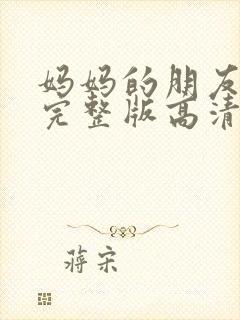 妈妈的朋友
完整版高清
蒋宋